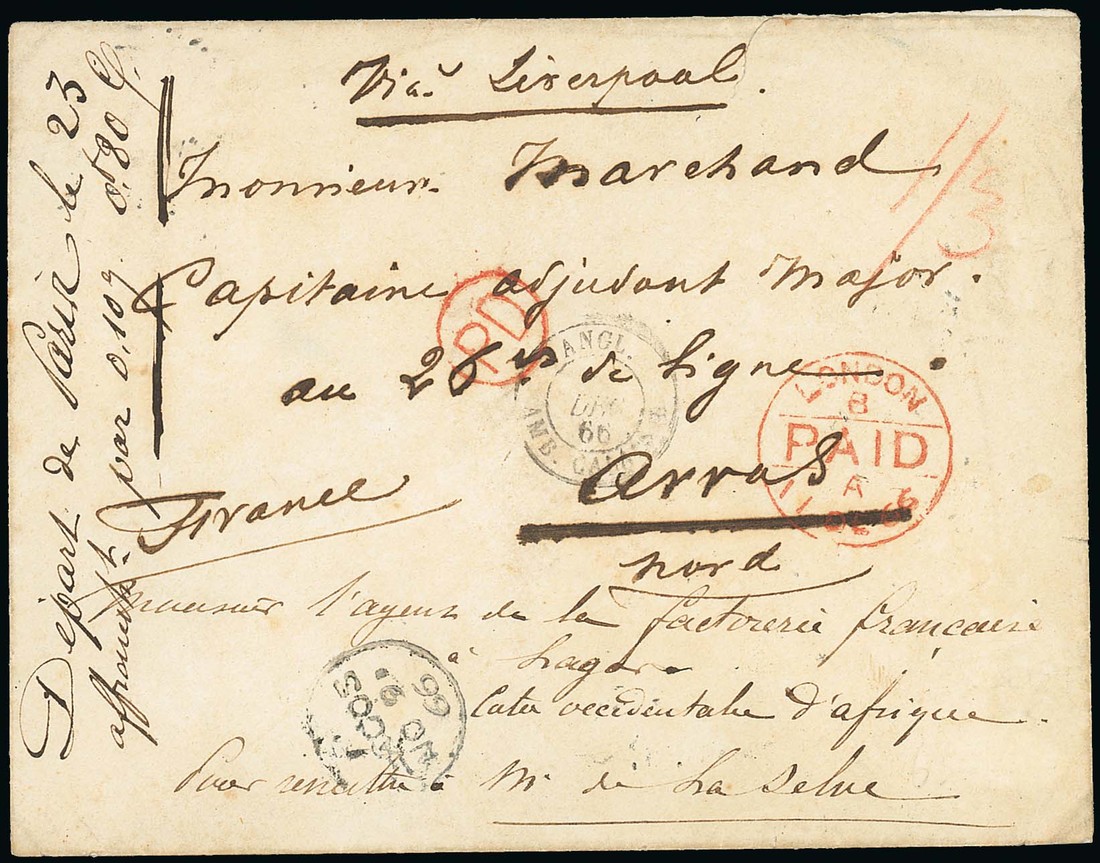 Via Liverpool.
Monsieur Marchand
Capitaine adjudant Major.
au 26 de Ligne
Arras
nord
France
Monsieur l'agent de la factorerie française
à Lagos
Cote occidentale d'afrique.
Pour remettre à Mr de La Selve
Départ de Paris le 23
affranchist par 0,10g 0f80 C.
1/3
PD
ANGL.
DEC
66
AMB. CALAIS
LONDON
B
PAID
A
11 DE 66
LAGOS
NO
66